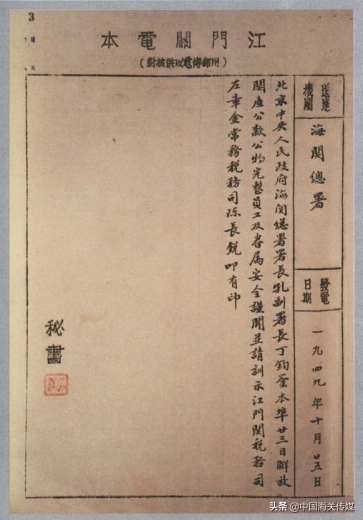 3
江門關電本
(附郵傳遞以供核對)
送達機關
海関總署
發電日期
一九四九年十月廿五日
北京中央人民政府海関總署署長孔副署長丁鈞鑒本埠廿三日解放
関產公款公物完整員工及眷属安全謹聞並請訓示江門関稅務司
左章金常務稅務司陈長銳叩有印
秘書
头条 @中国海关传媒